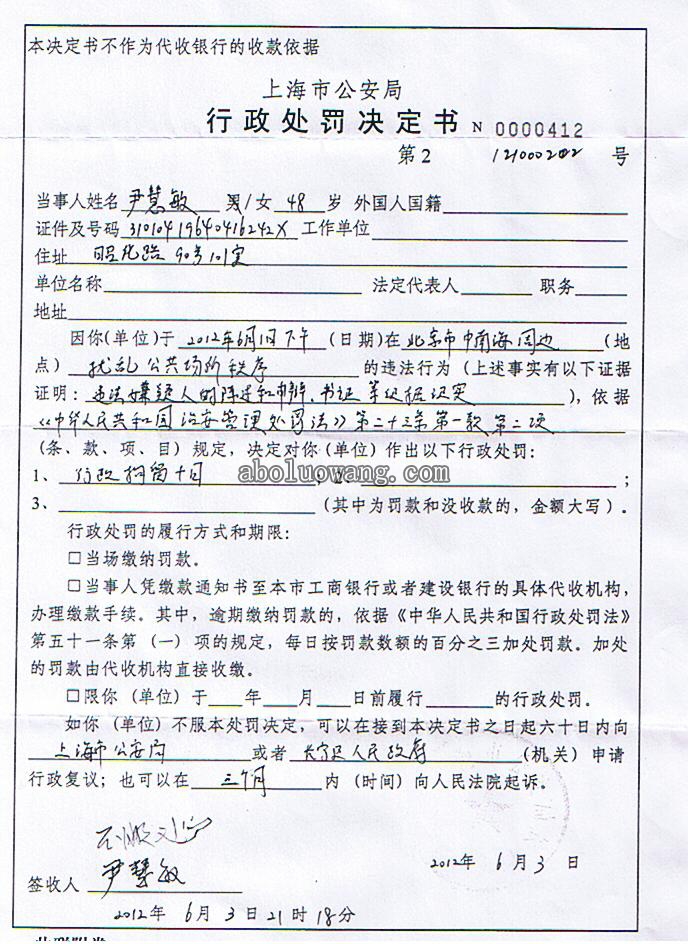 本决定书不作为代收银行的收款依据
上海市公安局
行政处罚决定书 N 0000412
第2 号
当事人姓名 尹慧敏 男/女 48 岁 外国人国籍
证件及号码 31010419640416242X 工作单位
住址 昭化路90号101室
单位名称 法定代表人 职务
地址
因你(单位)于 2012年6月1日下午 (日期)在 北京市中南海周边 (地
点) 扰乱公共场所秩序 的违法行为(上述事实有以下证据
证明: 违法嫌疑人的陈述和申辩、书证等证据证实 ),依据
《中华人民共和国治安管理处罚法》第二十三条第一款第二项
(条、款、项、目)规定,决定对你(单位)作出以下行政处罚:
1、 行政拘留十日 ;2、 ;
aboluowang.com
3、 (其中为罚款和没收款的,金额大写)。
行政处罚的履行方式和期限:
□当场缴纳罚款。
□当事人凭缴款通知书至本市工商银行或者建设银行的具体代收机构,
办理缴款手续。其中,逾期缴纳罚款的,依据《中华人民共和国行政处罚法》
第五十一条第(一)项的规定,每日按罚款数额的百分之三加处罚款。加处
的罚款由代收机构直接收缴。
□限你(单位)于 年 月 日前履行 的行政处罚。
如你(单位)不服本处罚决定,可以在接到本决定书之日起六十日内向
上海市公安局 或者 长宁区人民政府 (机关)申请
行政复议;也可以在 三个月 内(时间)向人民法院起诉。
签收人 尹慧敏
2012年 6月 3日
2012年 6月 3日21时18分